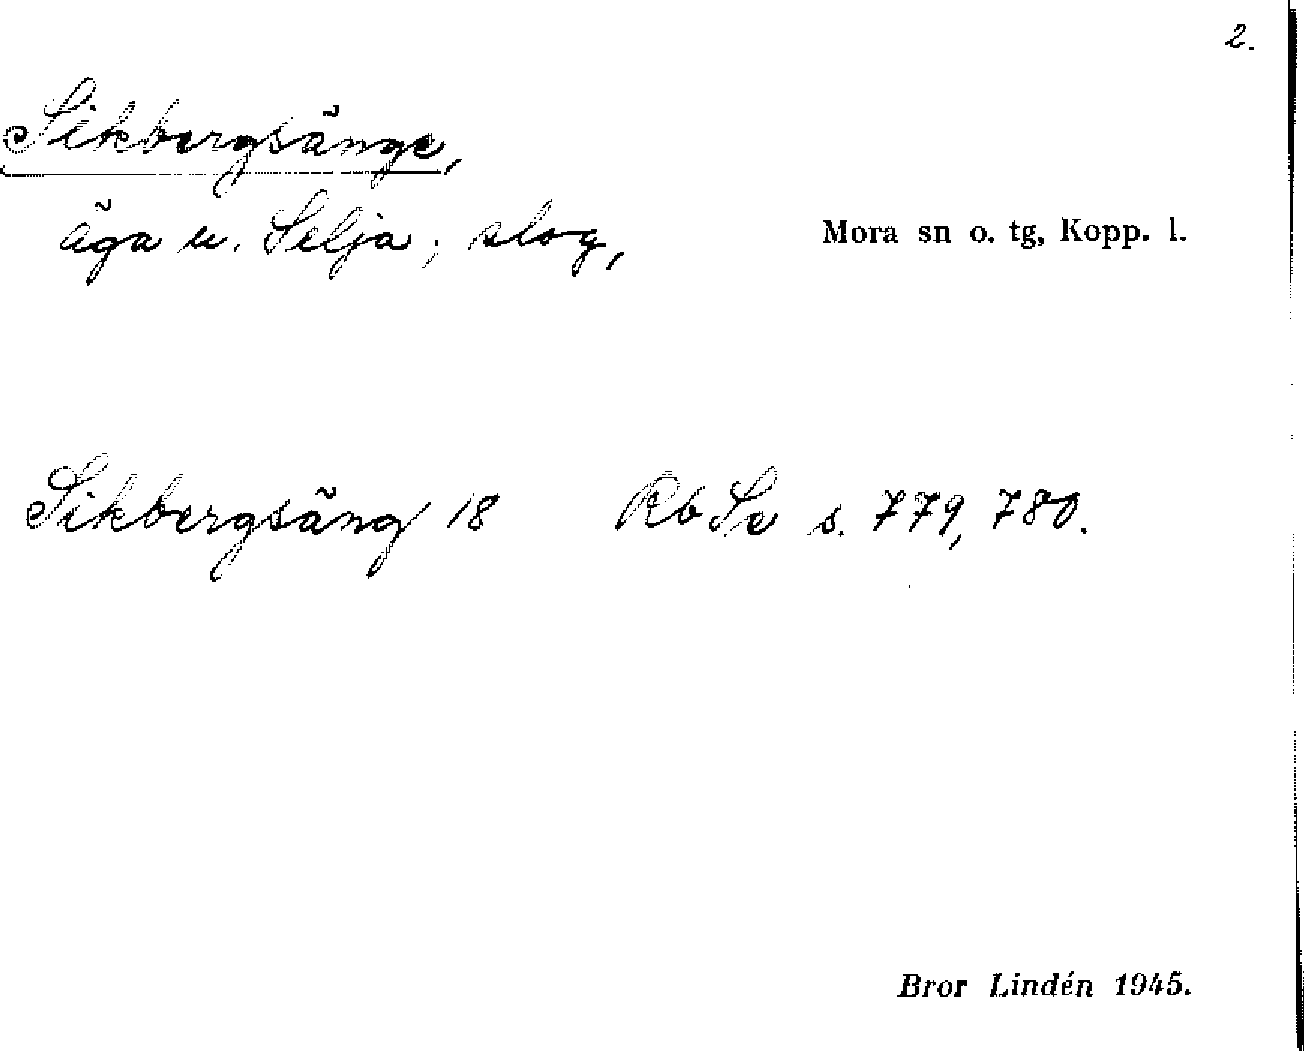 2.
Sikbergsänge,
äga u. Selja; slog,
Mora sn o. tg, Kopp. l.
Sikbergsäng 18 Rb Se s. 779, 780.
Bror Lindén 1945.